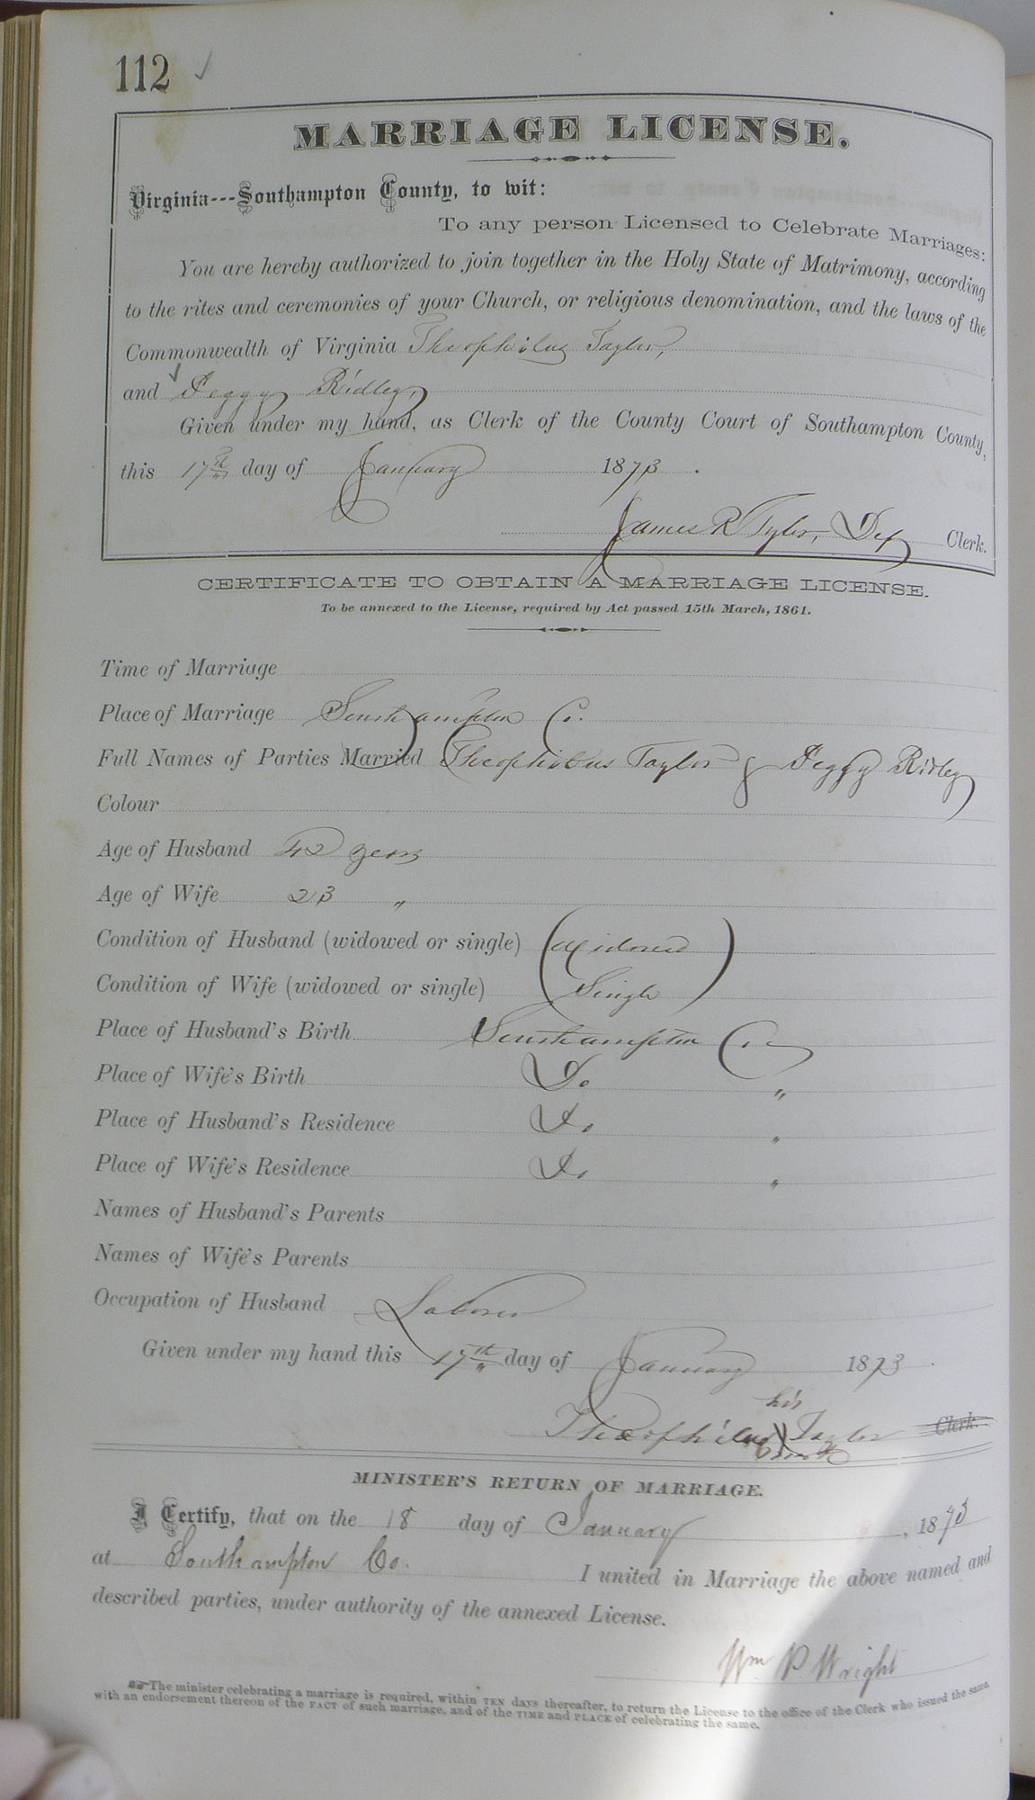 112 ✓
MARRIAGE LICENSE.
Virginia---Southampton County, to wit:
To any person Licensed to Celebrate Marriages:
You are hereby authorized to join together in the Holy State of Matrimony, according
to the rites and ceremonies of your Church, or religious denomination, and the laws of the
Commonwealth of Virginia Theophilus Taylor,
and ✓ Peggy Ridley,
Given under my hand, as Clerk of the County Court of Southampton County,
this 17th day of January 1873.
James R Tyler, Dep Clerk.
CERTIFICATE TO OBTAIN A MARRIAGE LICENSE.
To be annexed to the License, required by Act passed 15th March, 1861.
Time of Marriage
Place of Marriage Southampton Co.
Full Names of Parties Married Theophilus Taylor & Peggy Ridley
Colour
Age of Husband 42 years
Age of Wife 23 "
Condition of Husband (widowed or single) Widowed
Condition of Wife (widowed or single) Single
Place of Husband's Birth Southampton Co.
Place of Wife's Birth Do "
Place of Husband's Residence Do "
Place of Wife's Residence Do "
Names of Husband's Parents
Names of Wife's Parents
Occupation of Husband Laborer
Given under my hand this 17th day of January 1873.
his
Theophilus X Taylor Clerk.
mark
MINISTER'S RETURN OF MARRIAGE.
I Certify, that on the 18 day of January, 1873
at Southampton Co. I united in Marriage the above named and
described parties, under authority of the annexed License.
Wm P Wright
☞The minister celebrating a marriage is required, within TEN days thereafter, to return the License to the office of the Clerk who issued the same
with an endorsement thereon of the FACT of such marriage, and of the TIME and PLACE of celebrating the same.